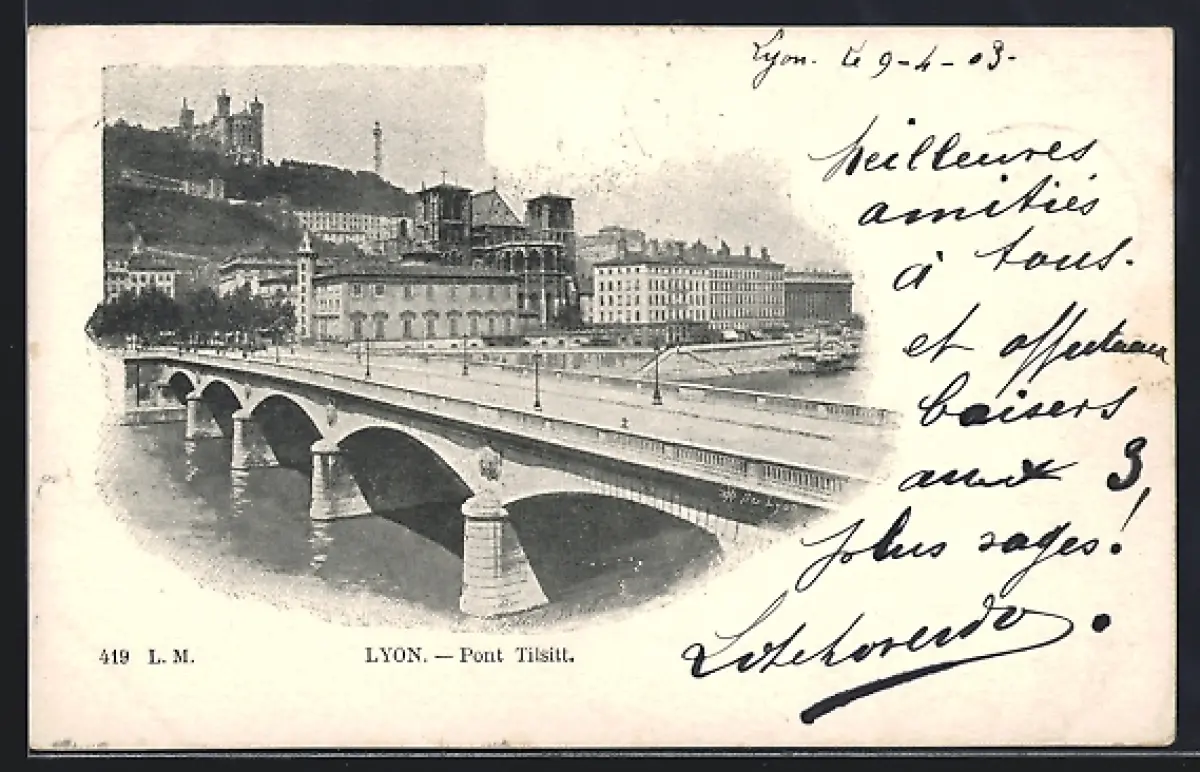 Lyon. le 9-4-03-
Meilleures
amitiés
à tous.
et affectueux
baisers
aux 3
plus sages!
419 L. M.
LYON. — Pont Tilsitt.